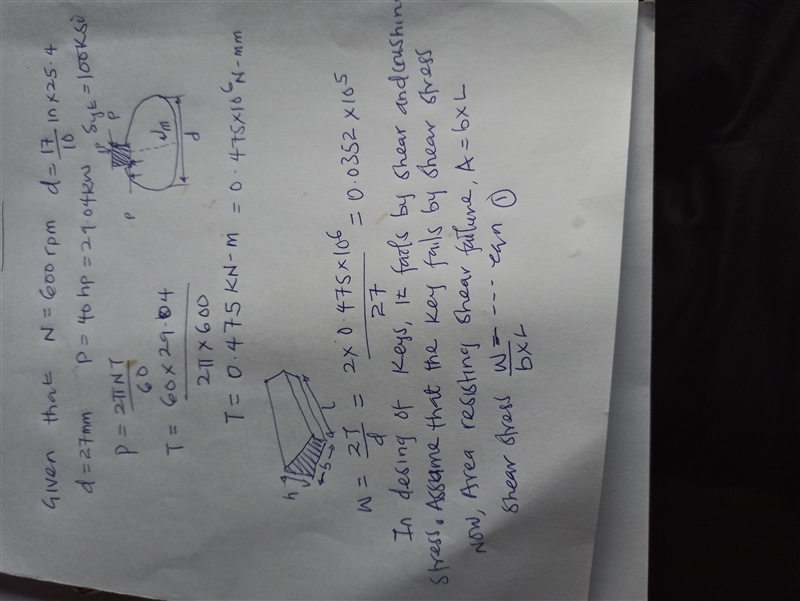 Given that N = 600 rpm d = 17/10 in x 25.4
d = 27mm P = 40 hp = 29.04 KW Syt = 100 Ksi
P = 2πNT/60
T = 60 x 29.04/2π x 600
T = 0.475 KN-m = 0.475 x 10⁶ N-mm
P P P
d
h b L
W = 2T/d = 2 x 0.475 x 10⁶/27 = 0.0352 x 10⁵
In desing of Keys, it fails by shear and crushing
stress. Assume that the key fails by shear stress
Now, Area resisting shear failure, A = b x L
Shear stress W/b x L = --- eqn ①